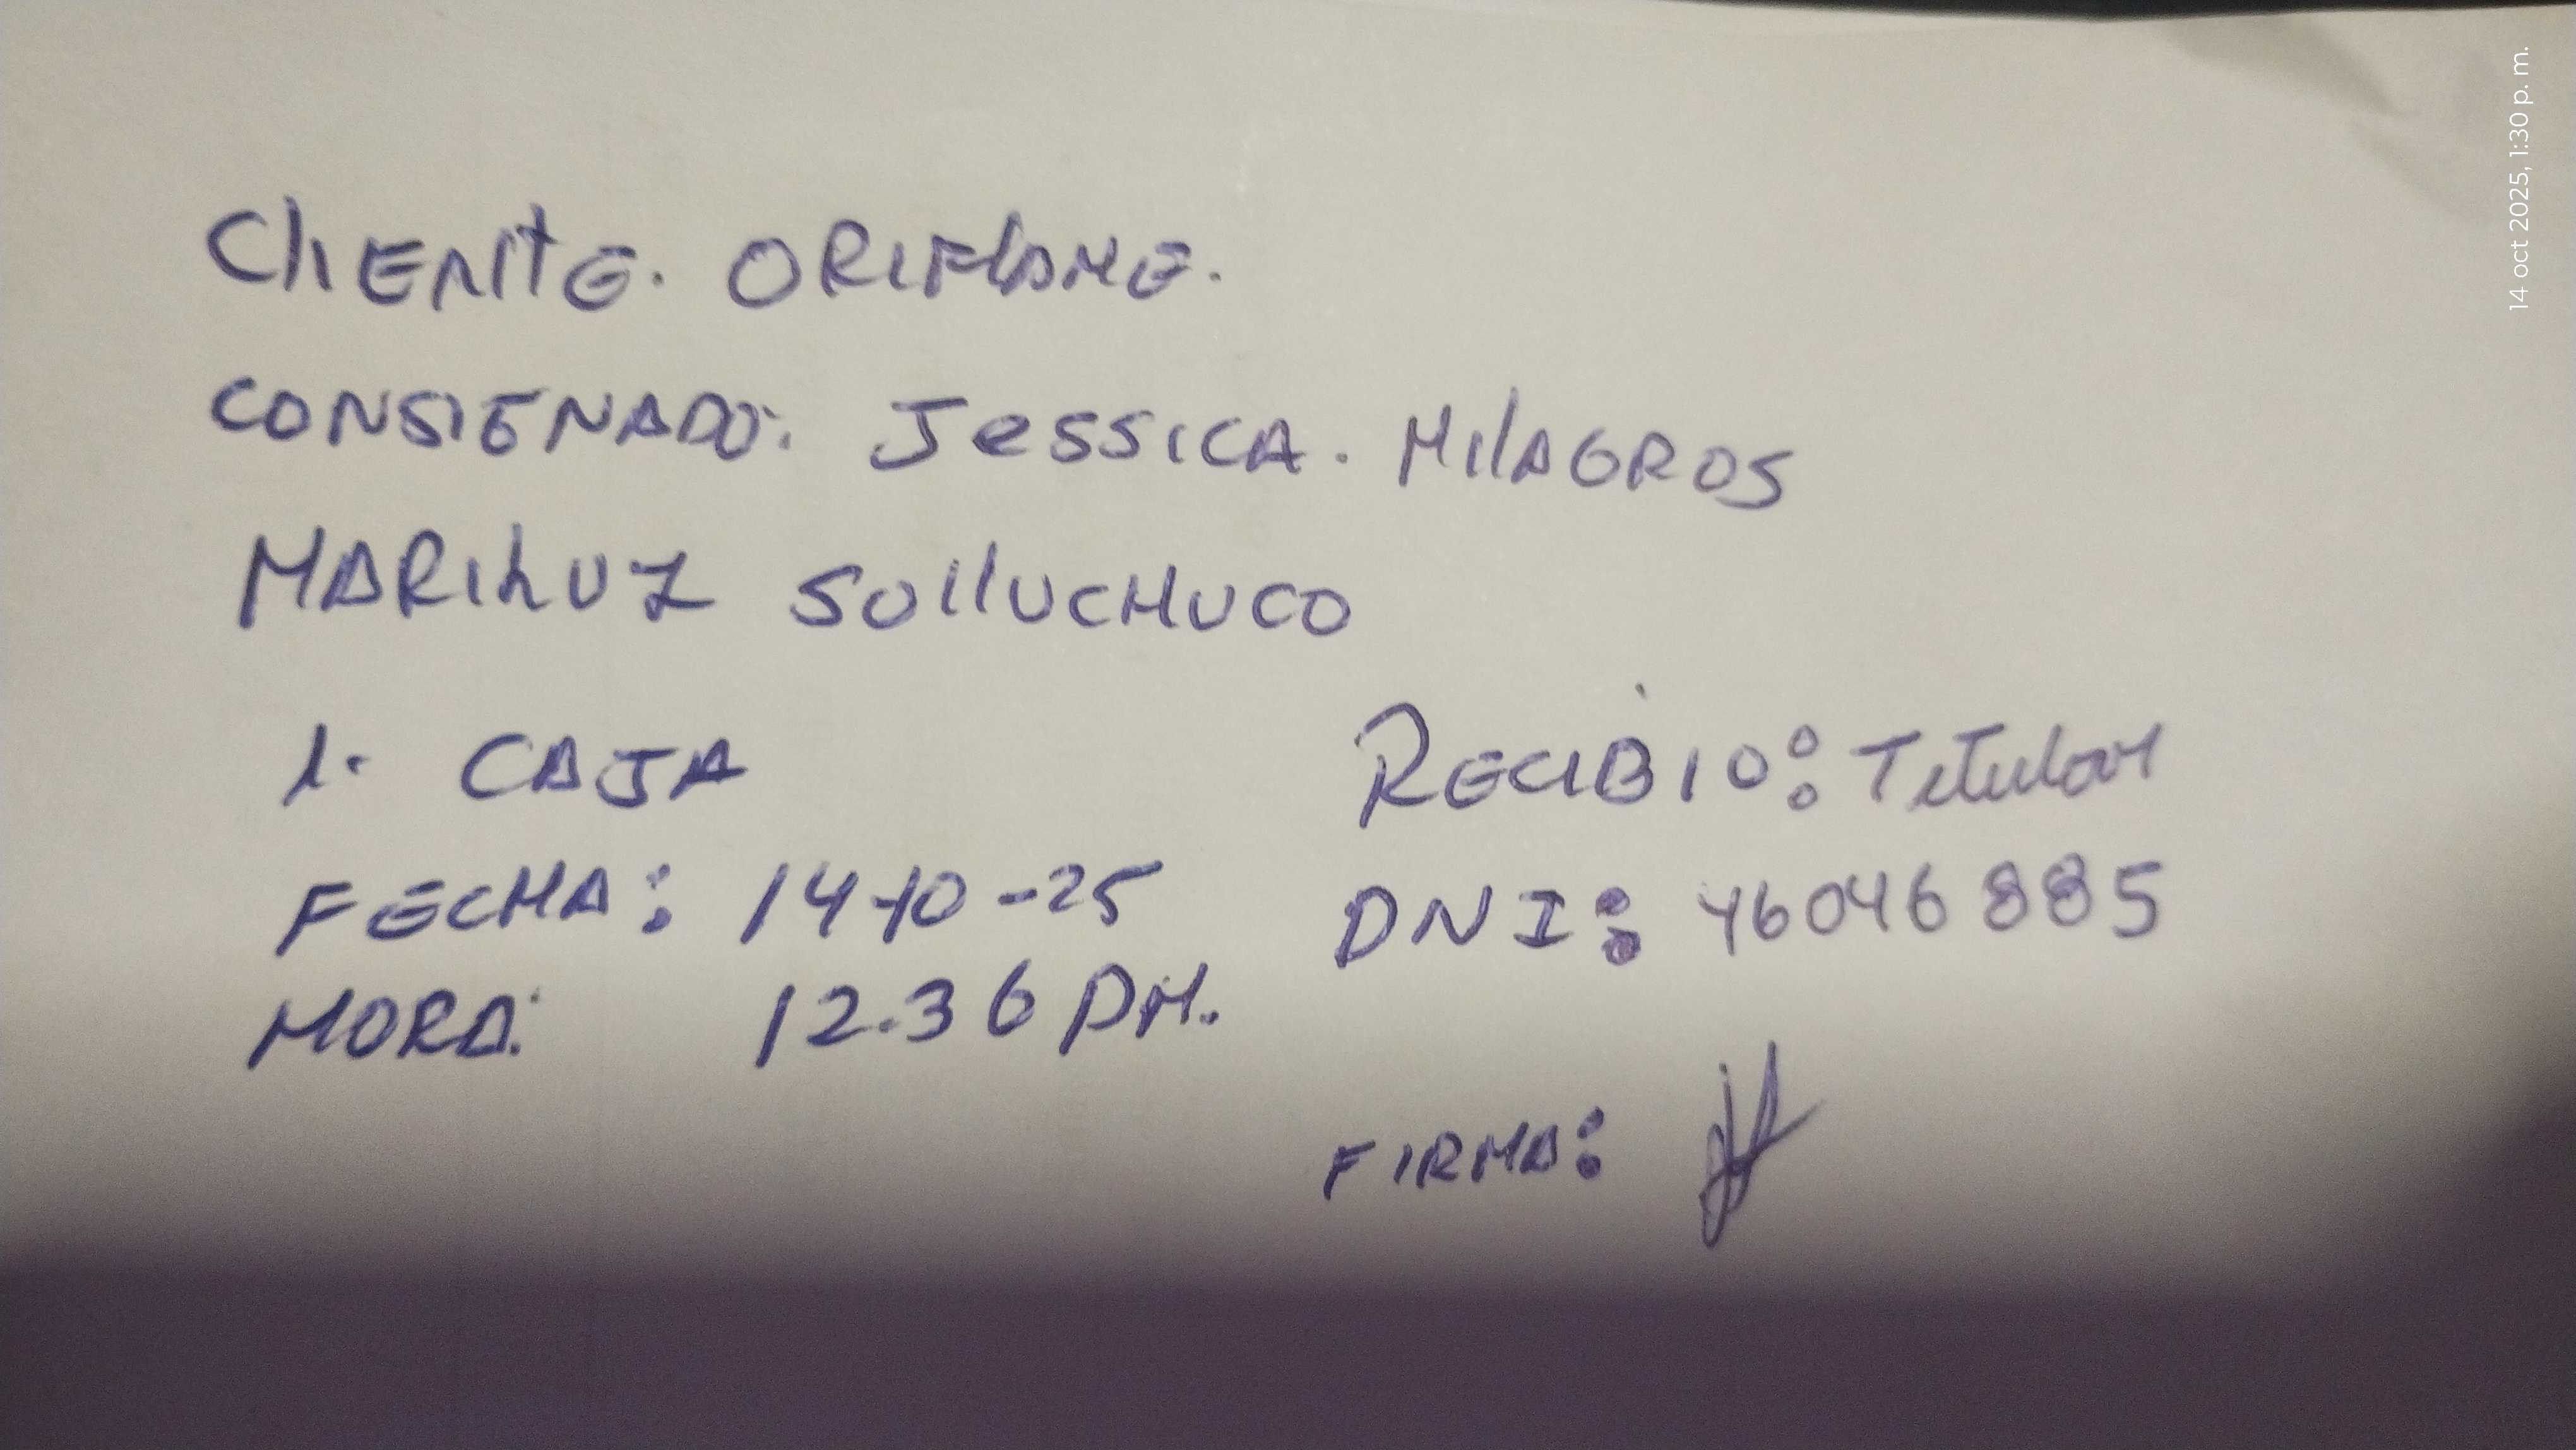 ClIENTE. ORIFLAME.
CONSIGNADO: JeSSICA. MIlAGROS
MARILUZ SUllUCHUCO
1. CAJA
RECIBIO: Titular
FECHA: 14-10-25
DNI: 46046885
HORA: 12.36 PM.
FIRMA:
14 oct 2025, 1:30 p. m.